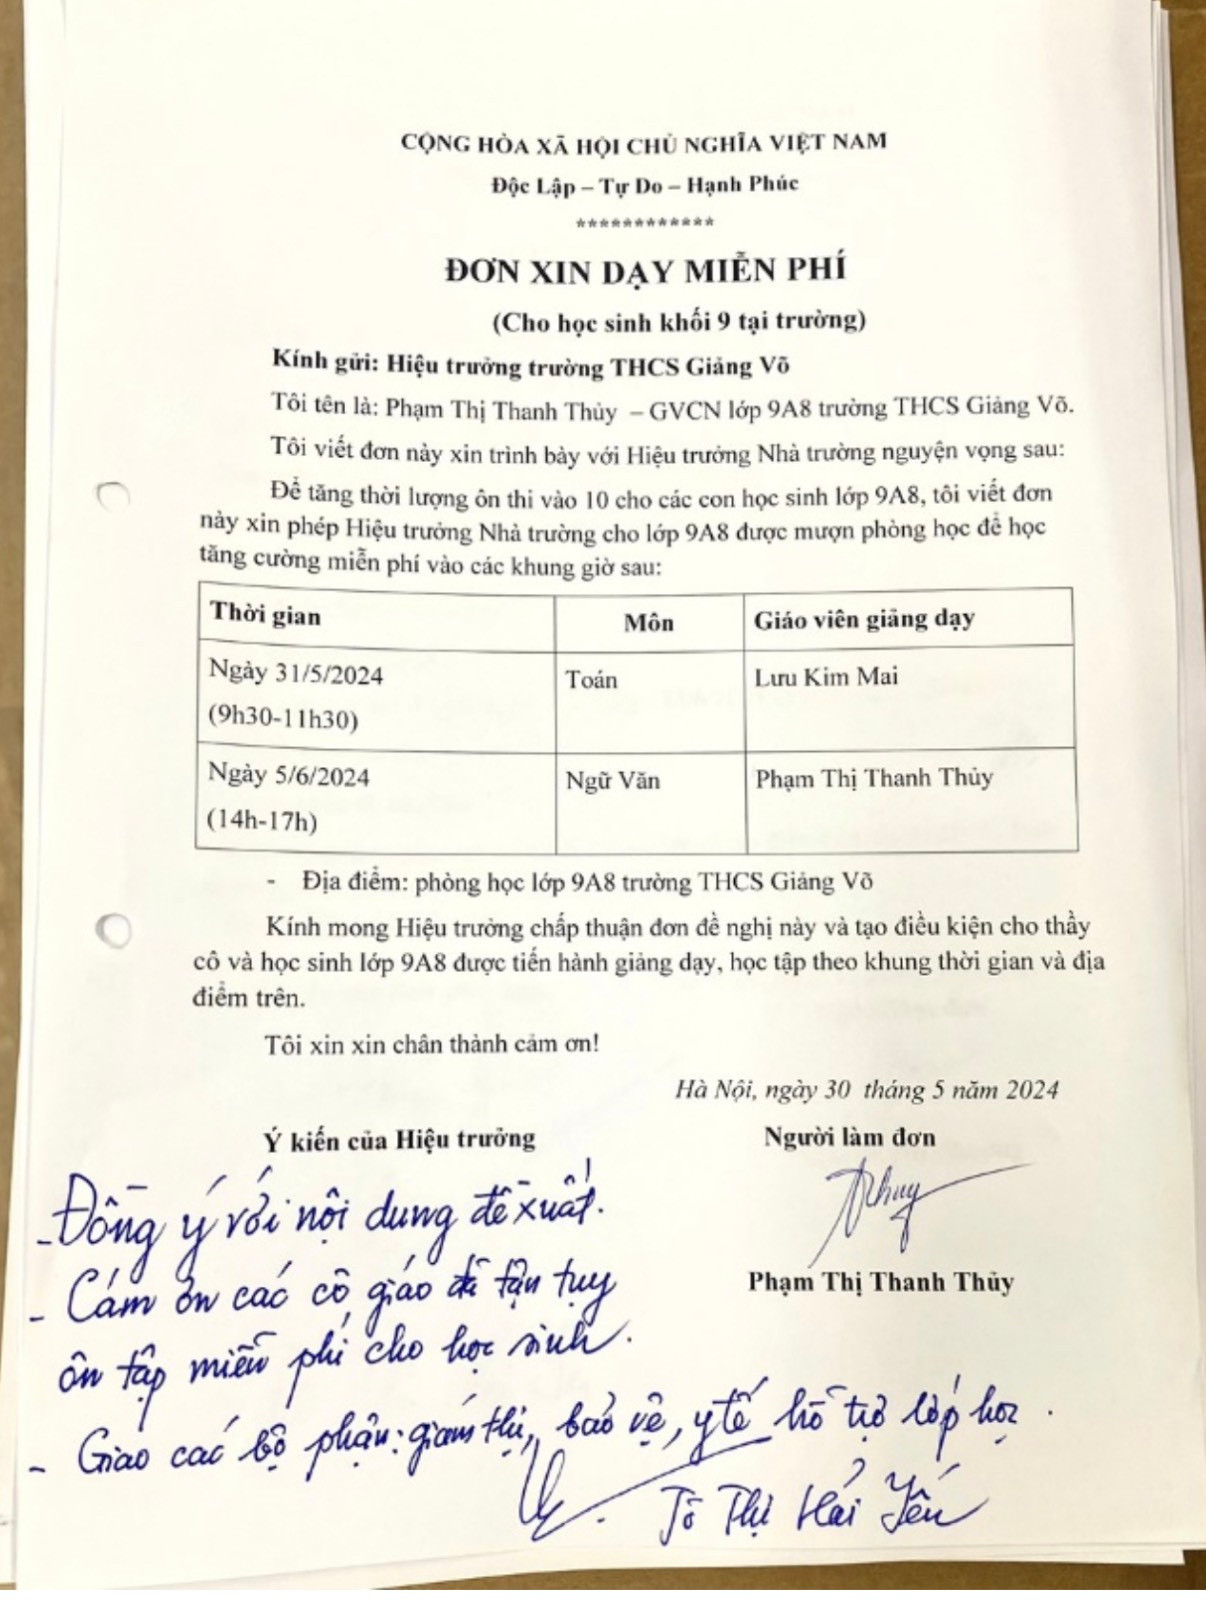 CỘNG HÒA XÃ HỘI CHỦ NGHĨA VIỆT NAM
Độc Lập – Tự Do – Hạnh Phúc
************
ĐƠN XIN DẠY MIỄN PHÍ
(Cho học sinh khối 9 tại trường)
Kính gửi: Hiệu trưởng trường THCS Giảng Võ
Tôi tên là: Phạm Thị Thanh Thủy – GVCN lớp 9A8 trường THCS Giảng Võ.
Tôi viết đơn này xin trình bày với Hiệu trưởng Nhà trường nguyện vọng sau:
Để tăng thời lượng ôn thi vào 10 cho các con học sinh lớp 9A8, tôi viết đơn
này xin phép Hiệu trưởng Nhà trường cho lớp 9A8 được mượn phòng học để học
tăng cường miễn phí vào các khung giờ sau:
Thời gian Môn Giáo viên giảng dạy
Ngày 31/5/2024 Toán Lưu Kim Mai
(9h30-11h30)
Ngày 5/6/2024 Ngữ Văn Phạm Thị Thanh Thủy
(14h-17h)
- Địa điểm: phòng học lớp 9A8 trường THCS Giảng Võ
Kính mong Hiệu trưởng chấp thuận đơn đề nghị này và tạo điều kiện cho thầy
cô và học sinh lớp 9A8 được tiến hành giảng dạy, học tập theo khung thời gian và địa
điểm trên.
Tôi xin xin chân thành cảm ơn!
Hà Nội, ngày 30 tháng 5 năm 2024
Ý kiến của Hiệu trưởng
Người làm đơn
- Đồng ý với nội dung đề xuất.
- Cám ơn các cô giáo đã tận tụy
ôn tập miễn phí cho học sinh.
- Giao các bộ phận: giám thị, bảo vệ, y tế hỗ trợ lớp học.
Thuy
Phạm Thị Thanh Thủy
Tô Thị Hải Yến